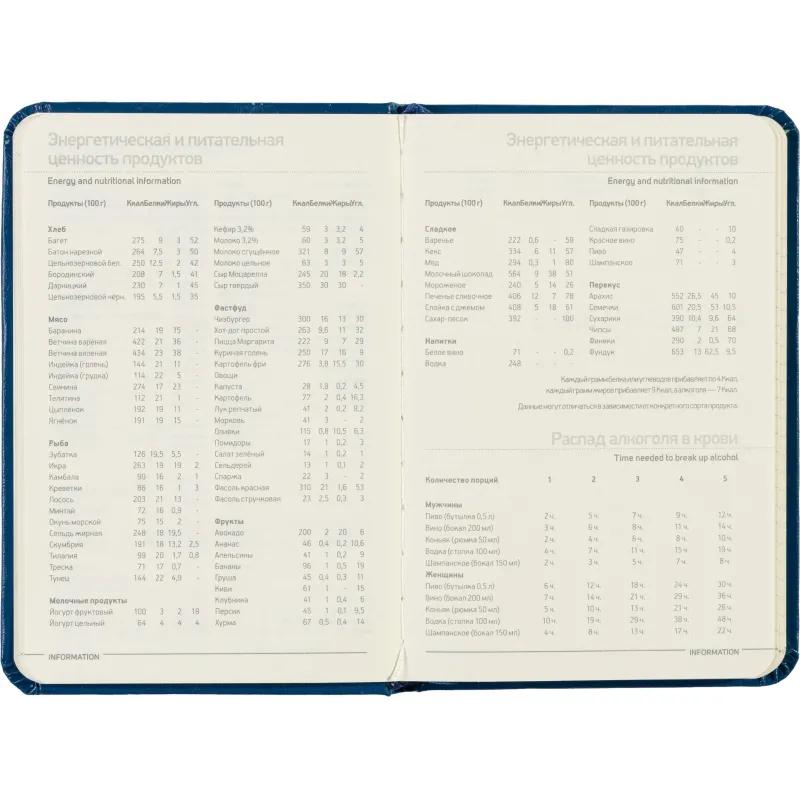 Энергетическая и питательная
ценность продуктов
Energy and nutritional information
Продукты (100 г) Ккал Белки Жиры Угл.
Хлеб
Багет 275 9 3 52
Батон нарезной 264 7,5 3 50
Цельнозерновой бел. 250 12,5 2 42
Бородинский 208 7 1,5 41
Дарницкий 230 7 1 45
Цельнозерновой чёрн. 195 5,5 1,5 35
Мясо
Баранина 214 19 15 -
Ветчина вареная 422 21 36 -
Ветчина вяленая 434 23 38 -
Индейка (голень) 144 21 11 -
Индейка (грудка) 114 22 5 -
Свинина 274 17 23 -
Телятина 112 21 1 -
Цыплёнок 192 19 11 -
Ягнёнок 191 19 15 -
Рыба
Зубатка 126 19,5 5,5 -
Икра 263 19 19 2
Камбала 90 16 2 1
Креветки 86 16 1 3
Лосось 203 21 13 -
Минтай 72 16 0,9 -
Окунь морской 75 15 2 -
Сельдь жирная 248 18 19,5 -
Скумбрия 191 18 13,2 2,5
Тилапия 99 20 1,7 0,8
Треска 71 17 0,7 -
Тунец 144 22 4,9 -
Молочные продукты
Йогурт фруктовый 100 3 2 18
Йогурт цельный 64 4 4 4
INFORMATION
Продукты (100 г) Ккал Белки Жиры Угл.
Кефир 3,2% 59 3 3,2 4
Молоко 3,2% 60 3 3,2 5
Молоко сгущённое 321 8 9 57
Молоко цельное 63 3 3 5
Сыр Моцарелла 245 20 18 2,2
Сыр твердый 350 30 30 -
Фастфуд
Чизбургер 300 16 13 30
Хот-дог простой 263 9,6 11 32
Пицца Маргарита 222 9 7 29
Куриная голень 250 17 16 9
Картофель фри 276 3,8 15,5 30
Овощи
Капуста 28 1,8 0,2 4,5
Картофель 77 2 0,4 16,3
Лук репчатый 41 2 0,2 8,2
Морковь 41 3 - 2
Оливки 115 0,8 10,5 6,3
Помидоры 17 1 0,2 3
Салат зелёный 14 1 0,2 1
Сельдерей 13 1 0,1 2
Спаржа 22 3 - 2
Фасоль красная 310 21 1,6 53
Фасоль стручковая 23 2,5 0,3 3
Фрукты
Авокадо 200 2 20 6
Ананас 46 0,4 0,2 10,6
Апельсины 41 1 0,2 9
Бананы 96 1 0,5 19
Груша 45 0,4 0,3 11
Киви 61 1 - 15
Клубника 41 1 0,4 6
Персик 45 1 0,1 9,5
Хурма 67 0,5 0,4 14
Энергетическая и питательная
ценность продуктов
Energy and nutritional information
Продукты (100 г) Ккал Белки Жиры Угл.
Сладкое
Варенье 222 0,6 - 59
Кекс 334 6 11 57
Мёд 294 0,3 1 80
Молочный шоколад 564 9 38 51
Мороженое 240 5 14 26
Печенье сливочное 406 12 7 78
Слойка с джемом 408 5 18 61
Сахар-песок 392 - - 100
Напитки
Белое вино 71 - - 0,2
Водка 248 - - -
Продукты (100 г) Ккал Белки Жиры Угл.
Сладкая газировка 40 - - 10
Красное вино 75 - - 0,2
Пиво 47 - - 4
Шампанское 71 - - 3
Перекус
Арахис 552 26,5 45 10
Семечки 601 20,5 53 10,5
Сухарики 390 10,4 9,6 64
Чипсы 487 7 21 68
Финики 290 2 0,5 70
Фундук 653 13 62,5 9,5
Каждый грамм белка или углеводов прибавляет по 4 Ккал,
каждый грамм жиров прибавляет 9 Ккал, а алкоголя — 7 Ккал.
Данные могут отличаться в зависимости от конкретного сорта продукта.
Распад алкоголя в крови
Time needed to break up alcohol
Количество порций 1 2 3 4 5
Мужчины
Пиво (бутылка 0,5 л) 2 ч. 5 ч. 7 ч. 9 ч. 12 ч.
Вино (бокал 200 мл) 3 ч. 6 ч. 8 ч. 11 ч. 14 ч.
Коньяк (рюмка 50 мл) 2 ч. 4 ч. 6 ч. 8 ч. 10 ч.
Водка (стопка 100 мл) 4 ч. 7 ч. 11 ч. 15 ч. 19 ч.
Шампанское (бокал 150 мл) 2 ч. 3 ч. 5 ч. 7 ч. 8 ч.
Женщины
Пиво (бутылка 0,5 л) 6 ч. 12 ч. 18 ч. 24 ч. 30 ч.
Вино (бокал 200 мл) 7 ч. 14 ч. 21 ч. 29 ч. 36 ч.
Коньяк (рюмка 50 мл) 5 ч. 10 ч. 13 ч. 21 ч. 26 ч.
Водка (стопка 100 мл) 10 ч. 19 ч. 29 ч. 38 ч. 48 ч.
Шампанское (бокал 150 мл) 4 ч. 8 ч. 13 ч. 17 ч. 22 ч.
INFORMATION